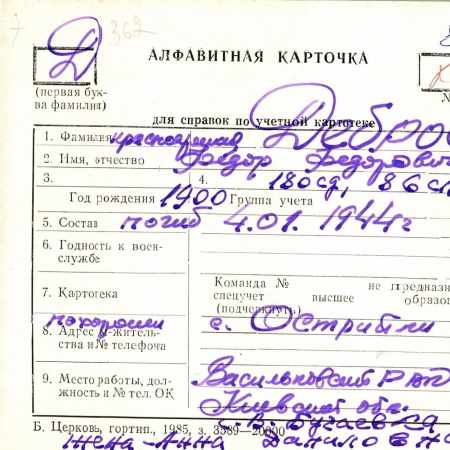 Д 362
АЛФАВИТНАЯ КАРТОЧКА
(первая бук-
ва фамилия)
№
для справок по учетной картотеке
1. Фамилия красноармеец Дебро
2. Имя, отчество Федор Федорович
3. 4. 180 сд, 86 с
Год рождения 1900 Группа учета
5. Состав погиб 4.01.1944 г
6. Годность к воен-
службе
Команда № не предназн
7. Картотека спецучет высшее образо
(подчеркнуть)
похоронен с. Острийки
8. Адрес и жительс-
тва и № телефона
9. Место работы, дол-
жность и № тел. ОК
Васильковский р
Киевской обл.
Б. Церковь, гортип., 1985, з. 3589—20000
жена - Анна Данилов